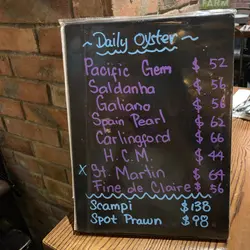 ~ Daily Oyster ~
Pacific Gem $ 52
Saldanha $ 56
Galiano $ 58
Spain Pearl $ 62
Carlingford $ 66
H.C.M. $ 44
x St. Martin $ 64
Fine de Claire $ 56
Scampi $138
Spot Prawn $98